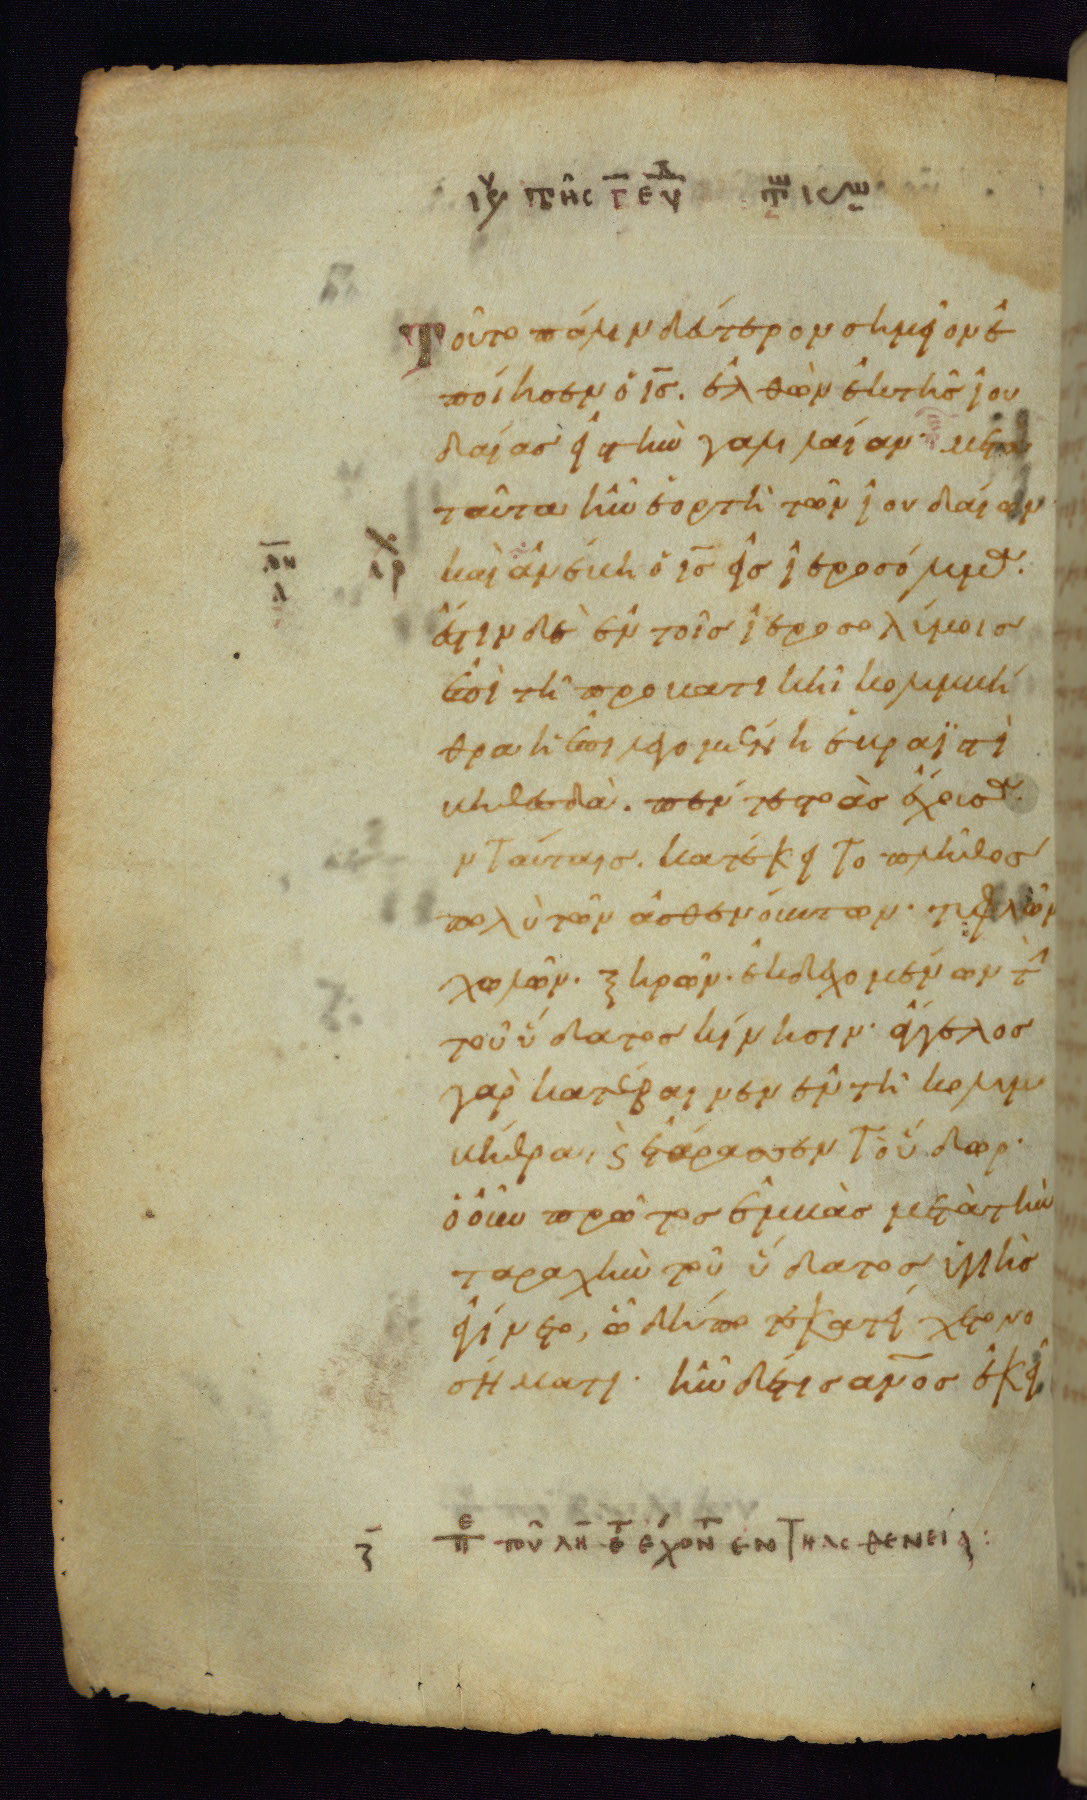 Τοῦτο πάλιν δεύτερον σημεῖον ἐ
ποίησεν ὁ ις. ἐλθὼν ἐκ τῆς ἰου
δαίας εἰς τὴν γαλιλαίαν· μετὰ
ταῦτα ἦν ἑορτὴ τῶν ἰουδαίων
καὶ ἀνέβη ὁ ις εἰς ἱεροσόλυμα.
ἔστιν δὲ ἐν τοῖς ἱεροσολύμοις
ἐπὶ τῆ προβατικῆ κολυμβή
θρα ἡ ἐπιλεγομένη ἑβραϊστὶ
βηθεσδὰ. πέντε στοὰς ἔχουσα.
ἐν ταύταις. κατέκειτο πλῆθος
πολὺ τῶν ἀσθενούντων· τυφλῶν
χωλῶν. ξηρῶν. ἐκδεχομένων τὴν
τοῦ ὕδατος κίνησιν· ἄγγελος
γὰρ κατέβαινεν ἐν τῆ κολυμ
βήθρα, ϗ ἐτάρασσεν τὸ ὕδωρ·
ὁ οὖν πρῶτος ἐμβὰς μετὰ τὴν
ταραχὴν τοῦ ὕδατος ὑγιὴς
ἐγίνετο, ὧ δήποτε κατείχετο νο
σήματι· ἦν δέ τις ανος ἐκεῖ